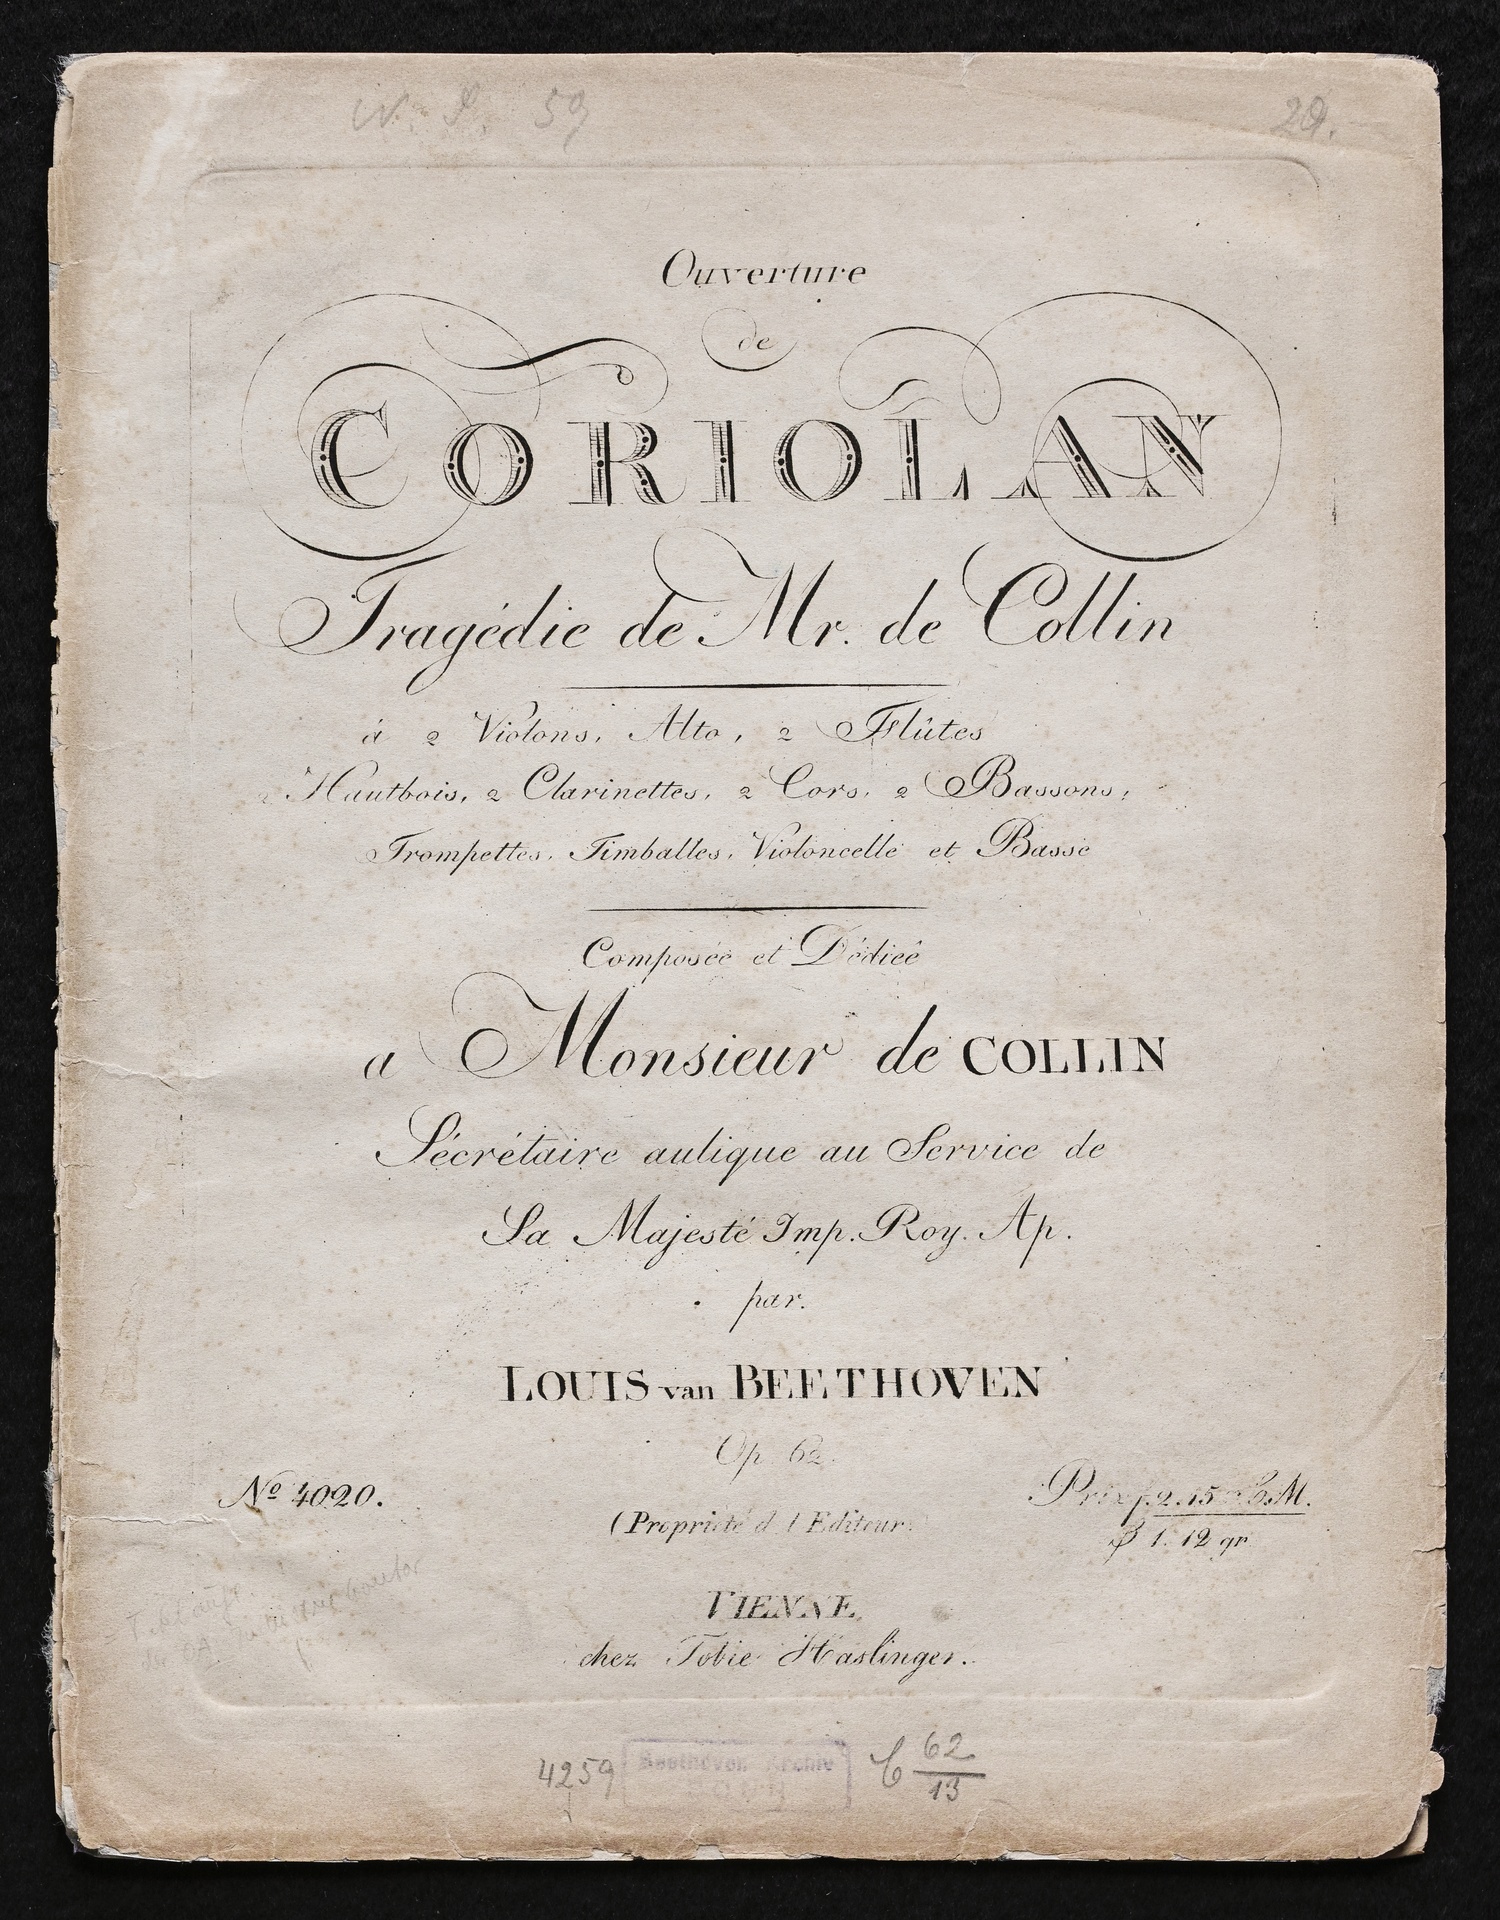 N. S. 59
29.
Ouverture
de
CORIOLAN
Tragédie de Mr. de Collin
à 2 Violons, Alto, 2 Flûtes
2 Hautbois, 2 Clarinettes, 2 Cors, 2 Bassons,
Trompettes, Timballes, Violoncelle et Basse
Composée et Dédieé
a Monsieur de COLLIN
Sécrétaire aulique au Service de
Sa Majesté Imp. Roy. Ap.
par
LOUIS van BEETHOVEN
Op 62.
No 4020.
Prix f 2.15 x C.M.
1. 12 gr
(Proprieté d l Editeur.
VIENNE,
chez Tobie Haslinger.
4259 Beethoven Archiv C 62
13